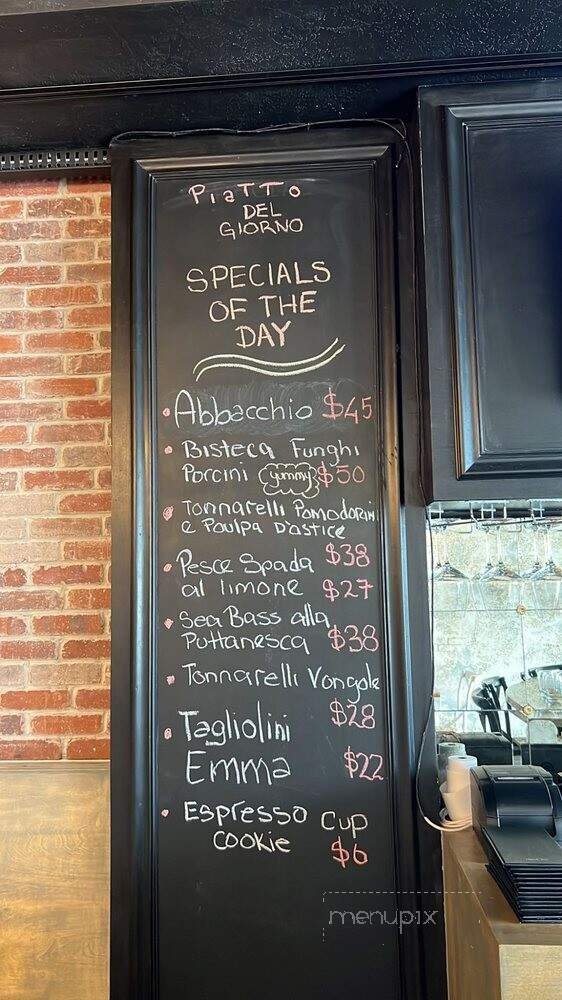 PiaTTo
DEL
GIORNO
SPECIALS
OF THE
DAY
Abbacchio $45
Bisteca Funghi
Porcini yummy $50
Tonnarelli Pomodorini
e Poulpa D'astice
$38
Pesce Spada
al limone $27
Sea Bass alla
Puttanesca $38
Tonnarelli Vongole
$28
Tagliolini
Emma $22
Espresso Cup
cookie $6
menupix